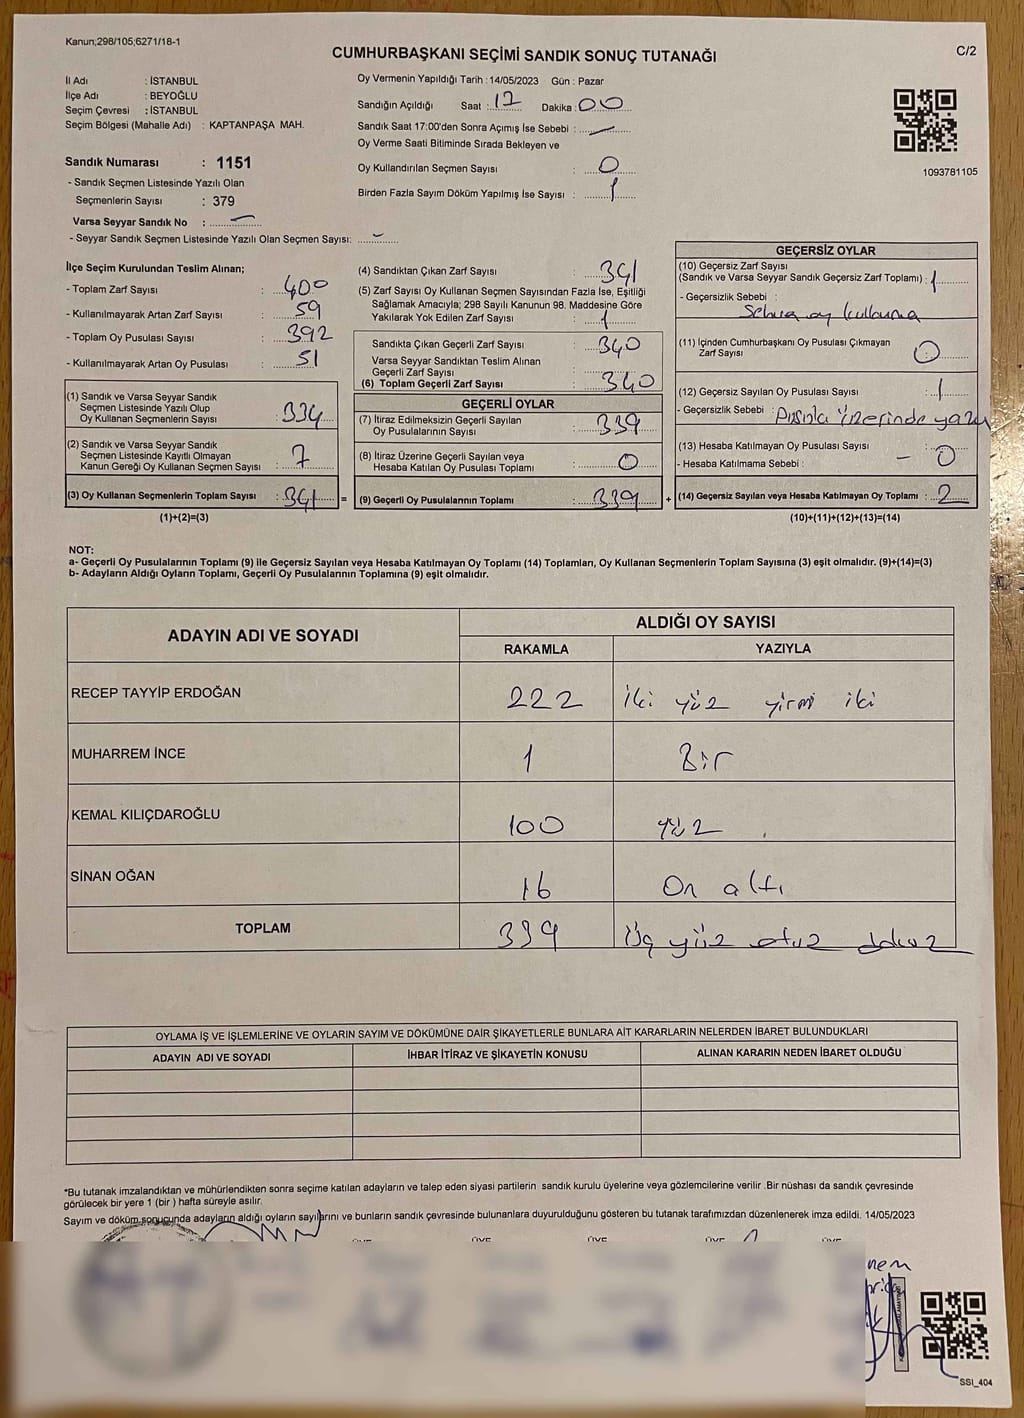 Kanun;298/105;6271/18-1
CUMHURBAŞKANI SEÇİMİ SANDIK SONUÇ TUTANAĞI
C/2
İl Adı : İSTANBUL
İlçe Adı : BEYOĞLU
Seçim Çevresi : İSTANBUL
Seçim Bölgesi (Mahalle Adı) : KAPTANPAŞA MAH.
Sandık Numarası : 1151
- Sandık Seçmen Listesinde Yazılı Olan
Seçmenlerin Sayısı : 379
Varsa Seyyar Sandık No : -
- Seyyar Sandık Seçmen Listesinde Yazılı Olan Seçmen Sayısı: -
Oy Vermenin Yapıldığı Tarih : 14/05/2023 Gün : Pazar
Sandığın Açıldığı Saat : 17 Dakika : 00
Sandık Saat 17:00'den Sonra Açımış İse Sebebi : -
Oy Verme Saati Bitiminde Sırada Bekleyen ve
Oy Kullandırılan Seçmen Sayısı : 0
Birden Fazla Sayım Döküm Yapılmış İse Sayısı : 1
1093781105
İlçe Seçim Kurulundan Teslim Alınan;
- Toplam Zarf Sayısı : 400
- Kullanılmayarak Artan Zarf Sayısı : 59
- Toplam Oy Pusulası Sayısı : 392
- Kullanılmayarak Artan Oy Pusulası : 51
(1) Sandık ve Varsa Seyyar Sandık
Seçmen Listesinde Yazılı Olup
Oy Kullanan Seçmenlerin Sayısı : 334
(2) Sandık ve Varsa Seyyar Sandık
Seçmen Listesinde Kayıtlı Olmayan
Kanun Gereği Oy Kullanan Seçmen Sayısı : 7
(3) Oy Kullanan Seçmenlerin Toplam Sayısı : 341 =
(1)+(2)=(3)
(4) Sandıktan Çıkan Zarf Sayısı : 341
(5) Zarf Sayısı Oy Kullanan Seçmen Sayısından Fazla İse, Eşitliği
Sağlamak Amacıyla; 298 Sayılı Kanunun 98. Maddesine Göre
Yakılarak Yok Edilen Zarf Sayısı : 1
Sandıkta Çıkan Geçerli Zarf Sayısı : 340
Varsa Seyyar Sandıktan Teslim Alınan
Geçerli Zarf Sayısı :
(6) Toplam Geçerli Zarf Sayısı : 340
GEÇERLİ OYLAR
(7) İtiraz Edilmeksizin Geçerli Sayılan
Oy Pusulalarının Sayısı : 339
(8) İtiraz Üzerine Geçerli Sayılan veya
Hesaba Katılan Oy Pusulası Toplamı : 0
(9) Geçerli Oy Pusulalarının Toplamı : 339 +
GEÇERSİZ OYLAR
(10) Geçersiz Zarf Sayısı
(Sandık ve Varsa Seyyar Sandık Geçersiz Zarf Toplamı) : 1
- Geçersizlik Sebebi :
oy kullanma
(11) İçinden Cumhurbaşkanı Oy Pusulası Çıkmayan
Zarf Sayısı 0
(12) Geçersiz Sayılan Oy Pusulası Sayısı : 1
- Geçersizlik Sebebi : Pusula üzerinde yazı
(13) Hesaba Katılmayan Oy Pusulası Sayısı : 0
- Hesaba Katılmama Sebebi : -
(14) Geçersiz Sayılan veya Hesaba Katılmayan Oy Toplamı : 2
(10)+(11)+(12)+(13)=(14)
NOT:
a- Geçerli Oy Pusulalarının Toplamı (9) ile Geçersiz Sayılan veya Hesaba Katılmayan Oy Toplamı (14) Toplamları, Oy Kullanan Seçmenlerin Toplam Sayısına (3) eşit olmalıdır. (9)+(14)=(3)
b- Adayların Aldığı Oyların Toplamı, Geçerli Oy Pusulalarının Toplamına (9) eşit olmalıdır.
ADAYIN ADI VE SOYADI
ALDIĞI OY SAYISI
RAKAMLA YAZIYLA
RECEP TAYYİP ERDOĞAN 222 iki yüz yirmi iki
MUHARREM İNCE 1 Bir
KEMAL KILIÇDAROĞLU 100 yüz
SİNAN OĞAN 16 On altı
TOPLAM 339 üç yüz otuz dokuz
OYLAMA İŞ VE İŞLEMLERİNE VE OYLARIN SAYIM VE DÖKÜMÜNE DAİR ŞİKAYETLERLE BUNLARA AİT KARARLARIN NELERDEN İBARET BULUNDUKLARI
ADAYIN ADI VE SOYADI İHBAR İTİRAZ VE ŞİKAYETİN KONUSU ALINAN KARARIN NEDEN İBARET OLDUĞU
*Bu tutanak imzalandıktan ve mühürlendikten sonra seçime katılan adayların ve talep eden siyasi partilerin sandık kurulu üyelerine veya gözlemcilerine verilir .Bir nüshası da sandık çevresinde
görülecek bir yere 1 (bir ) hafta süreyle asılır.
Sayım ve döküm sonucunda adayların aldığı oyların sayılarını ve bunların sandık çevresinde bulunanlara duyurulduğunu gösteren bu tutanak tarafımızdan düzenlenerek imza edildi. 14/05/2023
ÜYE ÜYE ÜYE ÜYE ÜYE
SSI_404